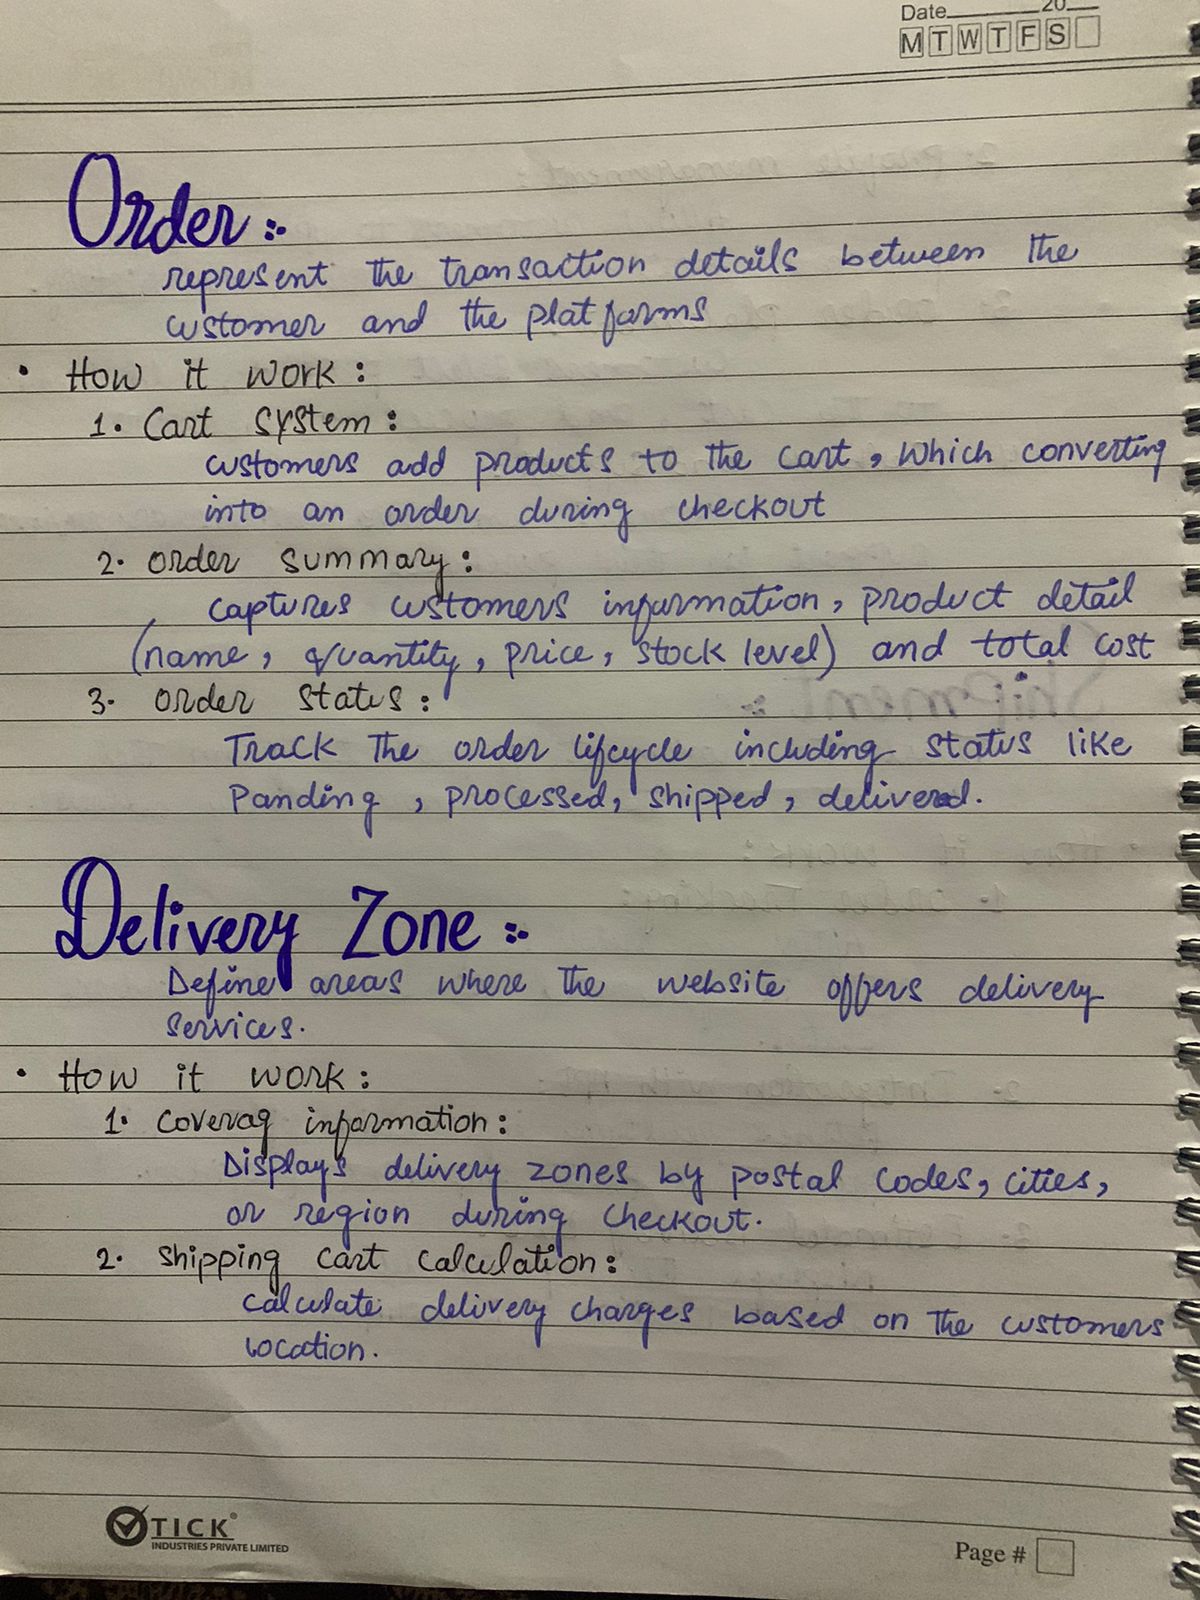 Date 20
M T W T F S
Order :-
represent the transaction details between the
customer and the platforms
• How it work :
1. Cart system :
customers add products to the cart, which converting
into an order during checkout
2. order summary :
captures customers information, product detail
(name, quantity, price, stock level) and total cost
3. order status :
Track the order lifcycle including status like
Panding , processed, shipped, delivered.
Delivery Zone :-
Define areas where the website offers delivery
services.
• How it work :
1. coverag information :
Displays delivery zones by postal codes, cities,
or region during checkout.
2. shipping cart calculation :
calculate delivery charges based on the customers
location.
TICK
INDUSTRIES PRIVATE LIMITED
Page #